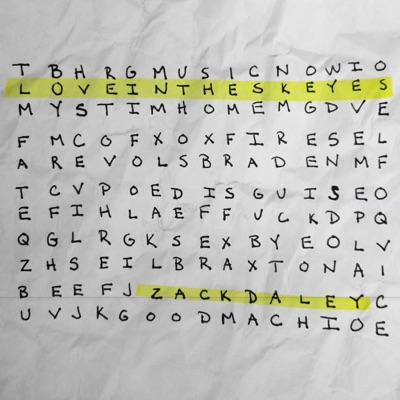 T B H R G M U S I C N O W I O
L O V E I N T H E S K E Y E S
M Y S T I M H O M E M G D V E
F M C O F X O X F I R E S E L
A R E V O L S B R A D E N M F
T C V P O E D I S G U I S E O
E F I H L A E F F U C K D P Q
Q G L R G K S E X B Y E O L V
Z H S E I L B R A X T O N A I
B E E F J Z A C K D A L E Y C
U V J K G O O D M A C H I O E